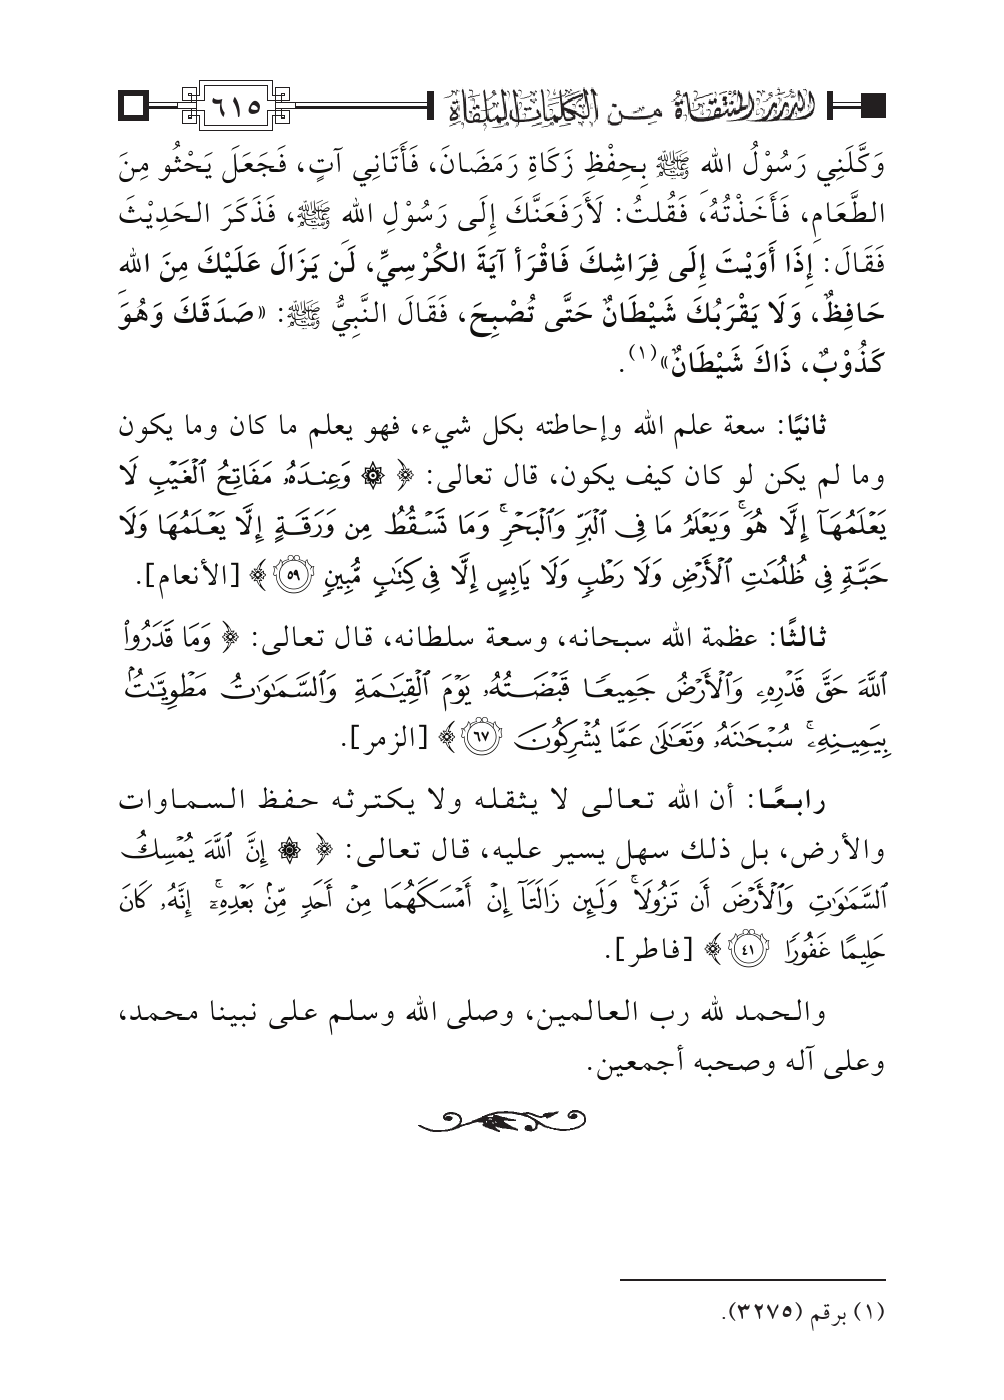 الدرر المنتقاة من الكلمات الملقاة ٦١٥
وَكَّلَنِي رَسُوْلُ اللهِ ﷺ بِحِفْظِ زَكَاةِ رَمَضَانَ، فَأَتَانِي آتٍ، فَجَعَلَ يَحْثُو مِنَ
الطَّعَامِ، فَأَخَذْتُهُ، فَقُلتُ: لَأَرفَعَنَّكَ إِلَى رَسُوْلِ اللهِ ﷺ، فَذَكَرَ الحَدِيْثَ
فَقَالَ: إِذَا أَوَيْتَ إِلَى فِرَاشِكَ فَاقْرَأ آيَةَ الكُرْسِيِّ، لَن يَزَالَ عَلَيْكَ مِنَ اللهِ
حَافِظٌ، وَلَا يَقْرَبُكَ شَيْطَانٌ حَتَّى تُصْبِحَ، فَقَالَ النَّبِيُّ ﷺ: «صَدَقَكَ وَهُوَ
كَذُوْبٌ، ذَاكَ شَيْطَانٌ»(١).
ثانيًا: سعة علم الله وإحاطته بكل شيء، فهو يعلم ما كان وما يكون
وما لم يكن لو كان كيف يكون، قال تعالى: ﴿ ۞ وَعِندَهُۥ مَفَاتِحُ ٱلْغَيْبِ لَا
يَعْلَمُهَآ إِلَّا هُوَ ۚ وَيَعْلَمُ مَا فِى ٱلْبَرِّ وَٱلْبَحْرِ ۚ وَمَا تَسْقُطُ مِن وَرَقَةٍ إِلَّا يَعْلَمُهَا وَلَا
حَبَّةٍ فِى ظُلُمَٰتِ ٱلْأَرْضِ وَلَا رَطْبٍ وَلَا يَابِسٍ إِلَّا فِى كِتَٰبٍ مُّبِينٍ ٥٩ ﴾ [الأنعام].
ثالثًا: عظمة الله سبحانه، وسعة سلطانه، قال تعالى: ﴿ وَمَا قَدَرُوا۟
ٱللَّهَ حَقَّ قَدْرِهِۦ وَٱلْأَرْضُ جَمِيعًا قَبْضَتُهُۥ يَوْمَ ٱلْقِيَٰمَةِ وَٱلسَّمَٰوَٰتُ مَطْوِيَّٰتٌۢ
بِيَمِينِهِۦ ۚ سُبْحَٰنَهُۥ وَتَعَٰلَىٰ عَمَّا يُشْرِكُونَ ٦٧ ﴾ [الزمر].
رابعًا: أن الله تعالى لا يثقله ولا يكترثه حفظ السماوات
والأرض، بل ذلك سهل يسير عليه، قال تعالى: ﴿ ۞ إِنَّ ٱللَّهَ يُمْسِكُ
ٱلسَّمَٰوَٰتِ وَٱلْأَرْضَ أَن تَزُولَا ۚ وَلَئِن زَالَتَآ إِنْ أَمْسَكَهُمَا مِنْ أَحَدٍ مِّنۢ بَعْدِهِۦٓ ۚ إِنَّهُۥ كَانَ
حَلِيمًا غَفُورًا ٤١ ﴾ [فاطر].
والحمد لله رب العالمين، وصلى الله وسلم على نبينا محمد،
وعلى آله وصحبه أجمعين.
(١) برقم (٣٢٧٥).